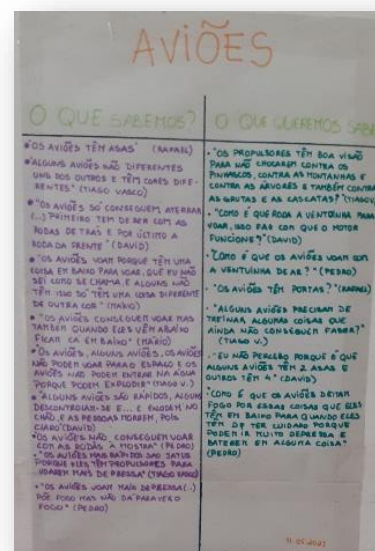 AVIÕES
O QUE SABEMOS?
• "OS AVIÕES TÊM ASAS" (RAFAEL)
• "ALGUNS AVIÕES SÃO DIFERENTES
UNS DOS OUTROS E TÊM CORES DIFE-
RENTES" (TIAGO VASCO)
• "OS AVIÕES SÓ CONSEGUEM ATERRAR
(...) PRIMEIRO TEM DE SER COM AS
RODAS DE TRÁS E POR ÚLTIMO A
RODA DA FRENTE" (DAVID)
• "OS AVIÕES VOAM PORQUE TÊM UMA
COISA EM BAIXO PARA VOAR, QUE EU NÃO
SEI COMO SE CHAMA, E ALGUNS NÃO
TÊM ISSO SÓ TÊM UMA COISA DIFERENTE
DE OUTRA COR" (MÁRIO)
• "OS AVIÕES CONSEGUEM VOAR MAS
TAMBÉM QUANDO ELES VÊM ABAIXO
FICAM CÁ EM BAIXO" (MÁRIO)
• OS AVIÕES, ALGUNS AVIÕES, OS AVIÕES
NÃO PODEM VOAR PARA O ESPAÇO E OS
AVIÕES NÃO PODEM ENTRAR NA ÁGUA
PORQUE PODEM EXPLODIR" (TIAGO V.)
• "ALGUNS AVIÕES SÃO RÁPIDOS, ALGUNS
DESCONTROLAM-SE E... E EXPLODEM NO
CHÃO, E AS PESSOAS MORREM, POIS
CLARO" (DAVID)
• "OS AVIÕES NÃO CONSEGUEM VOAR
COM AS RODAS À MOSTRA" (PEDRO)
• "OS AVIÕES MAIS RÁPIDOS SÃO JATOS
PORQUE ELES TÊM PROPULSORES PARA
VOAREM MAIS DEPRESSA" (TIAGO VASCO)
• "OS AVIÕES VOAM MAIS DEPRESSA (...)
PÕE FOGO MAS NÃO DÁ PARA VER O
FOGO" (PEDRO)
O QUE QUEREMOS SABER
• "OS PROPULSORES TÊM BOA VISÃO
PARA NÃO CHOCAREM CONTRA OS
PINHASCOS, CONTRA AS MONTANHAS E
CONTRA AS ÁRVORES E TAMBÉM CONTRA
AS GRUTAS E AS CASCATAS?" (TIAGO V.)
• "COMO É QUE RODA A VENTOINHA PARA
VOAR, ISSO FAZ COM QUE O MOTOR
FUNCIONE?" (DAVID)
• "COMO É QUE OS AVIÕES VOAM COM
A VENTOINHA DE AR?" (PEDRO)
• "OS AVIÕES TÊM PORTAS?" (RAFAEL)
• "ALGUNS AVIÕES PRECISAM DE
TREINAR, ALGUMAS COISAS QUE
AINDA NÃO CONSEGUEM FAZER?"
(TIAGO V.)
• "EU NÃO PERCEBO PORQUE É QUE
ALGUNS AVIÕES TÊM 2 ASAS E
OUTROS TÊM 4" (DAVID)
• "COMO É QUE OS AVIÕES DEITAM
FOGO POR ESSAS COISAS QUE ELES
TÊM EM BAIXO PARA QUANDO ELES
TÊM DE TER CUIDADO PORQUE
PODEM IR MUITO DEPRESSA E
BATEREM EM ALGUMA COISA"
(PEDRO)